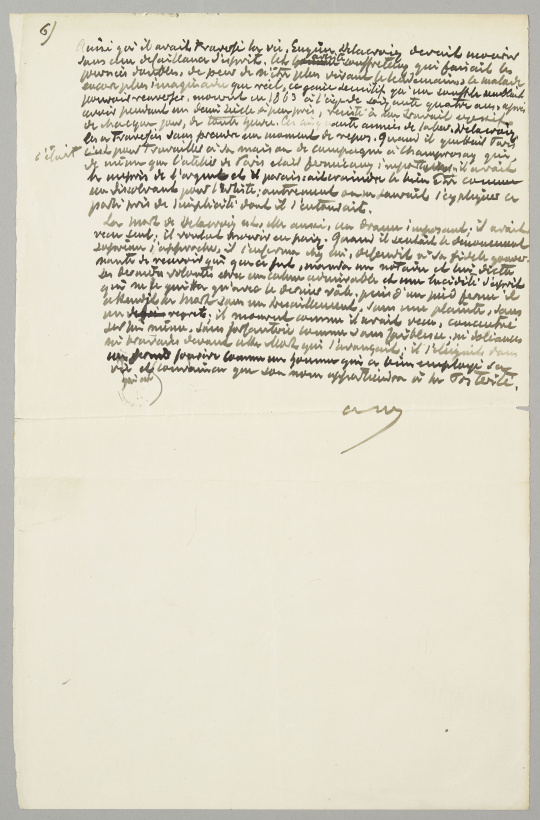 6)
Ainsi qu'il avait traversé la vie, Eugène Delacroix devait mourir
sans une défaillance d'esprit. Cet souffreteux qui faisait les
journées doubles, de peur de n'être plus vivant le lendemain, ce malade
encore plus imaginaire que réel, ce génie sensitif qu'un souffle semblait
pouvoir renverser, mourut en 1863 à l'âge de soixante quatre ans, après
avoir pendant un demi siècle à peu près, résisté à un travail excessif
de chaque jour, de toute heure. années de labeur, Delacroix
les a traversées sans prendre un moment de repos. Quand il quittait Paris
c'était
c'est pour travailler à sa maison de campagne à Champrosay qui,
de même que l'atelier de Paris était fermé aux il avait
le mépris de l'argent et il paraissait craindre le bien être comme
un dissolvant pour l'artiste; autrement on ne saurait s'expliquer ce
parti pris de simplicité dont il s'entourait.
La mort de Delacroix est, elle aussi, un drame imposant; il avait
vécu seul, il voulut mourir en paix. Quand il sentait le dénouement
suprême s'approcher, il s'enferma chez lui, défendit à sa fidèle gouver-
nante de recevoir qui que ce fut, manda un notaire et lui dicta
ses dernières volontés avec un calme admirable et une lucidité d'esprit
qui ne le quitta qu'avec le dernier râle, puis d'un pied ferme il
attendit la mort sans un tressaillement, sans une plainte, sans
un regret; il mourut comme il avait vécu, concentré
sur lui même, sans forfanterie comme sans faiblesse, ni doléances
ni bravades devant cette mort qui s'avançait; il s'éteignit dans
un grand sourire comme un homme qui a bien employé sa
vie et convaincu que son nom appartiendra à la Postérité.